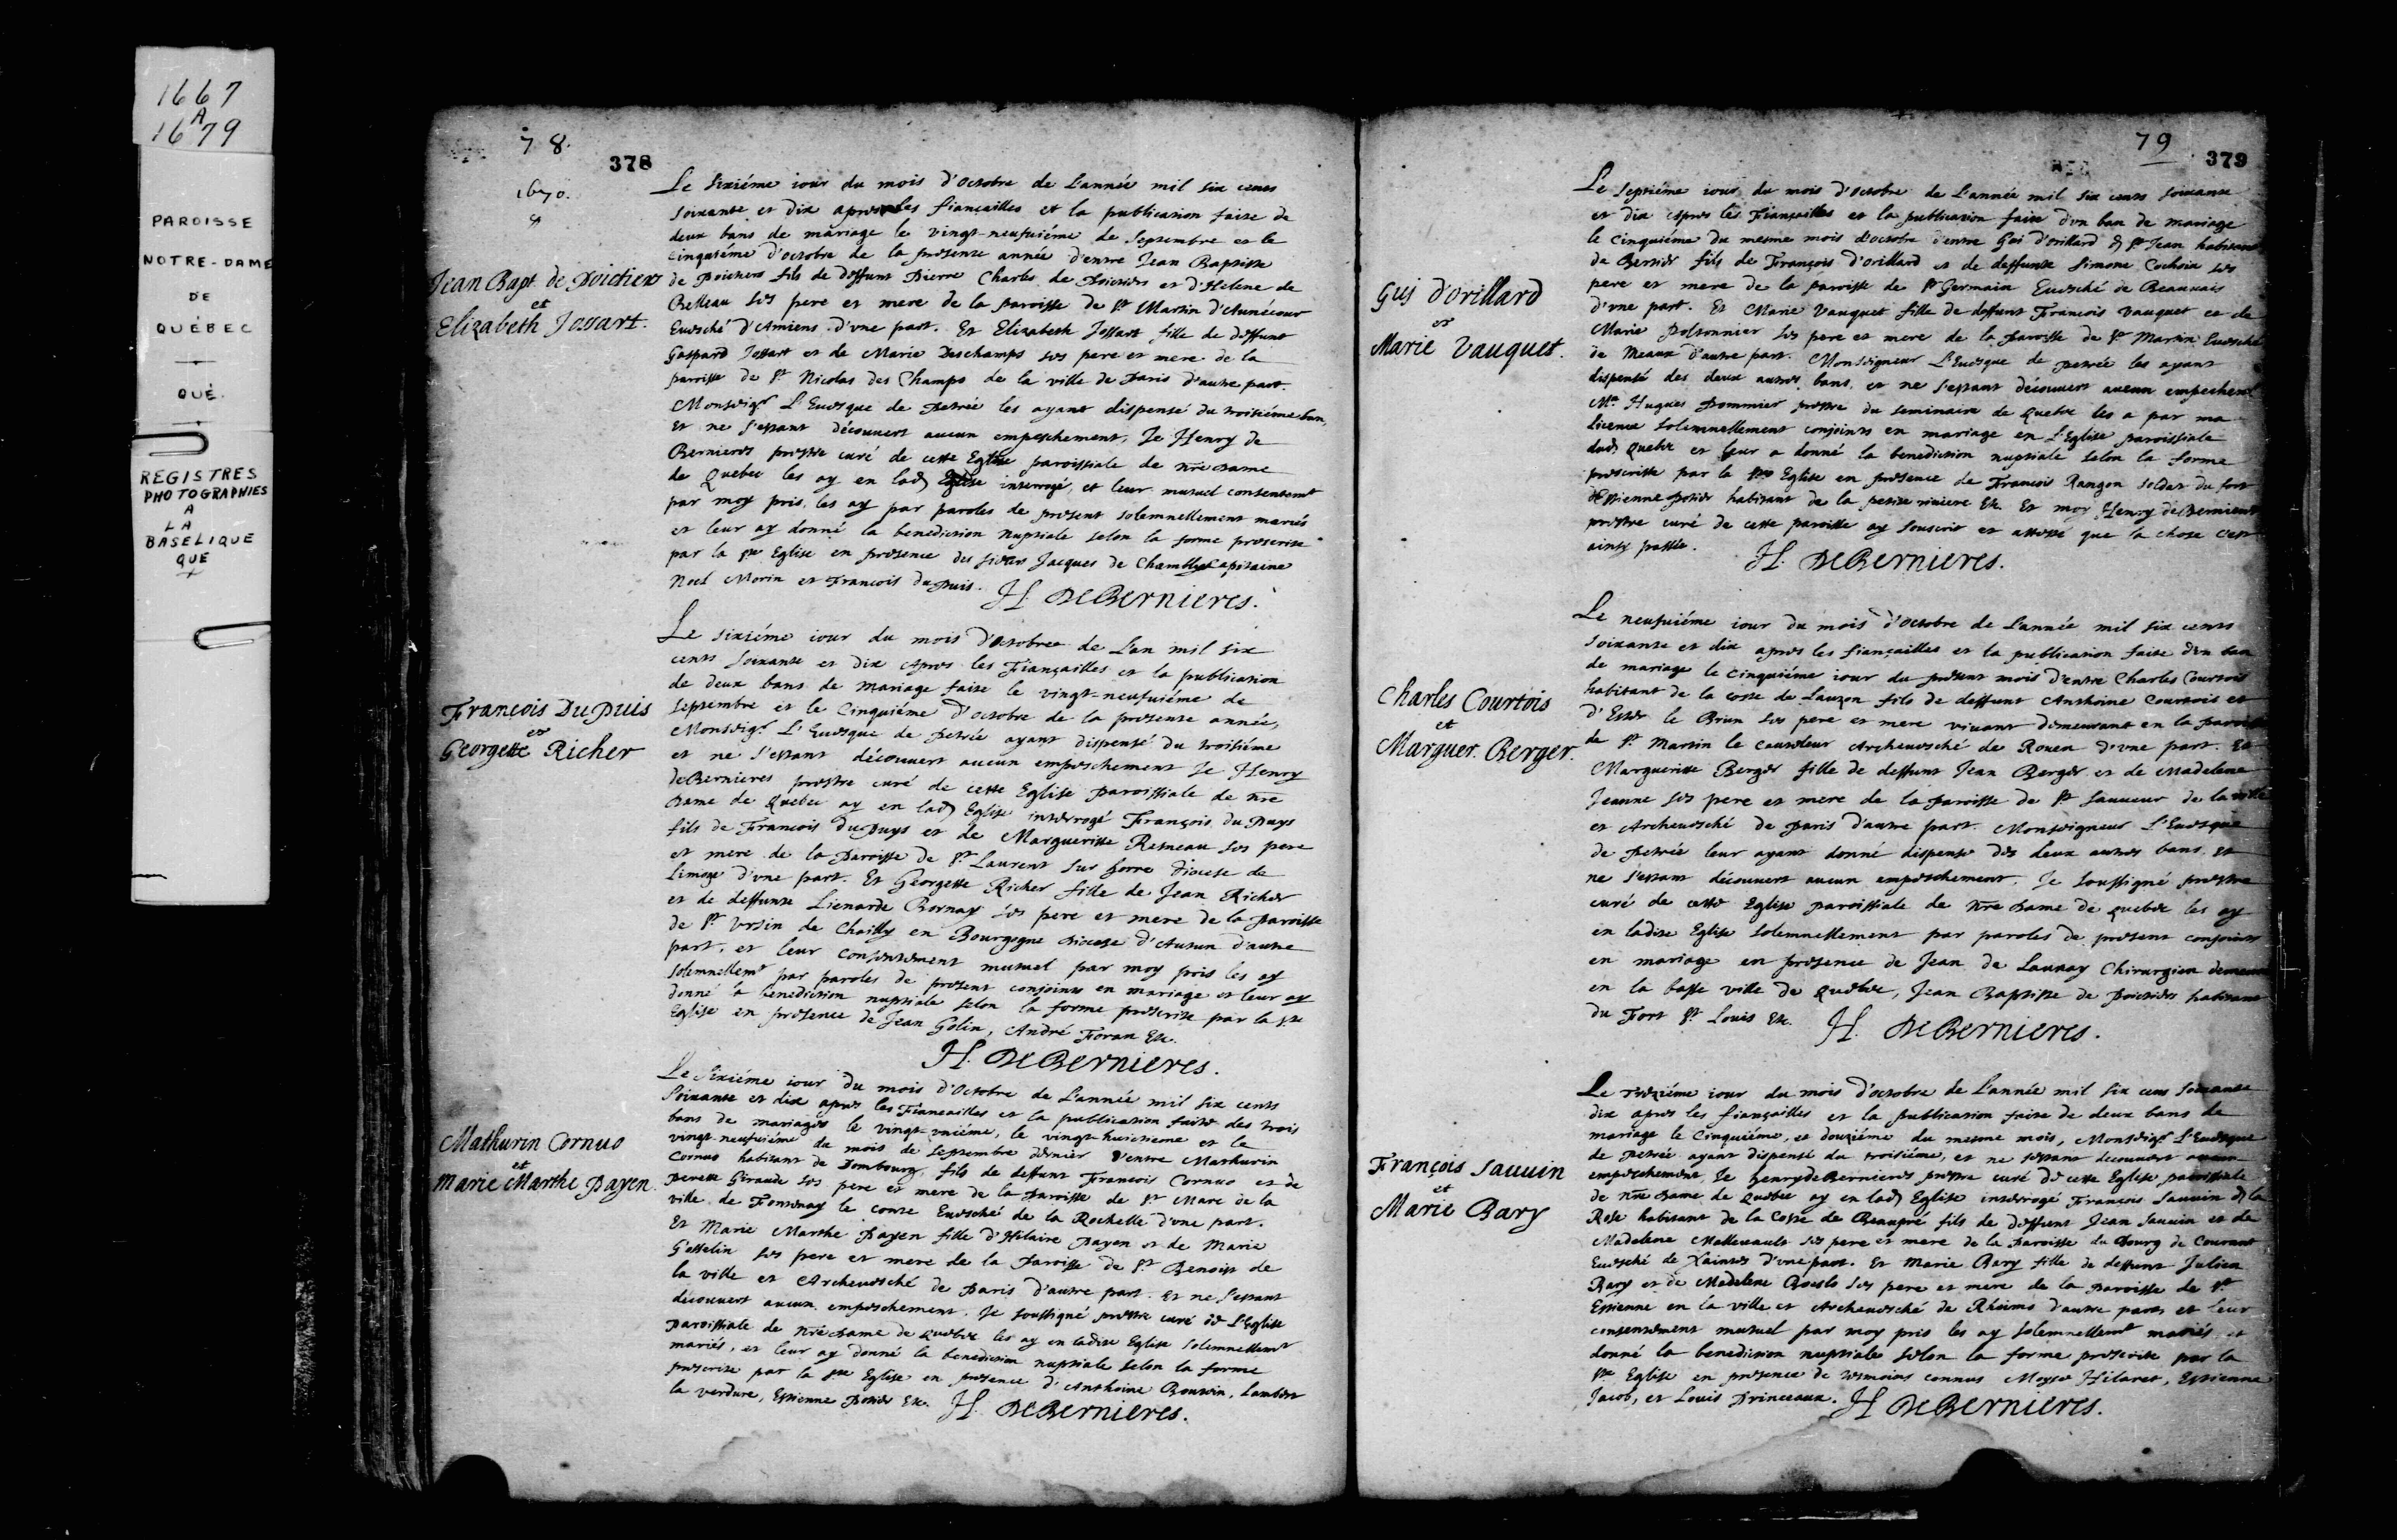 1667
A
1679
PAROISSE
NOTRE-DAME
DE
QUÉBEC
QUÉ.
REGISTRES
PHOTOGRAPHIES
A
LA
BASELIQUE
QUE
78.
378
1670.
Jean Bapt. de Poictiers
et
Elizabeth Jossart.
Le sixiéme iour du mois d'octobre de L'année mil six cents
soixante et dix apres les fiançailles et la publication faite de
deux bans de mariage le vingt-neufuiéme de septembre et le
cinquiéme d'octobre de la presente année d'entre Jean Baptiste
de Poictiers fils de deffunt Pierre Charles de Poictiers et d'Helene de
Belleau ses pere et mere de la paroisse de St Martin d'Annécour
Euesché d'Amiens d'vne part. Et Elizabeth Jossart fille de deffunt
Gaspard Jossart et de Marie Deschamps ses pere et mere de la
paroisse de St Nicolas des Champs de la ville de Paris d'autre part.
Monseigr L'Euesque de Petrée les ayant dispensé du troisiéme ban,
Et ne s'estant découuert aucun empeschement, Je Henry de
Bernieres prestre curé de cette Eglise paroissiale de nre Dame
de Quebec les ay en lad Eglise interrogé, et leur mutuel consentemt
par moy pris, les ay par paroles de present solemnellement mariés
et leur ay donné la benediction nuptiale selon la forme prescrite
par la ste Eglise en presence des sieurs Jacques de Chambly Capitaine
Noel Morin et Francois du Puis. H. DeBernieres.
François Du Puis
et
Georgette Richer
Le sixiéme iour du mois d'octobre de L'an mil six
cents soixante et dix Apres les Fiançailles et la publication
de deux bans de mariage faite le vingt-neufuiéme de
septembre et le Cinquiéme d'octobre de la presente année,
Monseigr L'Euesque de Petrée ayant dispensé du troisiéme
et ne s'estant découuert aucun empeschement Je Henry
deBernieres prestre curé de cette Eglise paroissiale de nre
Dame de Quebec ay en lad Eglise interrogé François du Puys
fils de Francois du Puys et de Margueritte Resneau ses pere
et mere de la Paroisse de St Laurent sur gorre diocese de
Limoge d'vne part. Et Georgette Richer fille de Jean Richer
et de deffunte Lienarde Bornay ses pere et mere de la paroisse
de St Vrsin de Chailly en Bourgogne diocese d'Autun d'autre
part, et leur consentement mutuel par moy pris les ay
solemnellemt par paroles de present conjoints en mariage et leur ay
donné la benediction nuptiale selon la forme prescrite par la ste
Eglise en presence de Jean Golin, André Foran Etc.
H. DeBernieres.
Mathurin Cornuo
et
Marie Marthe Payen.
Le sixiéme iour du mois d'Octobre de L'année mil six cents
Soixante et dix apres les Fiancailles et la publication faite des trois
bans de mariages le vingt-vniéme, le vingt-huictieme et le
vingt-neufuiéme du mois de septembre dernier d'entre Mathurin
Cornuo habitant de Dombourg, fils de deffunt Francois Cornuo et de
Perette Giraude ses pere et mere de la Paroisse de St Marc de la
ville de Fontenay le conte Euesché de la Rochelle d'vne part.
Et Marie Marthe Payen fille d'Hilaire Payen et de Marie
Gosselin ses pere et mere de la Paroisse de St Benoist de
la ville et Archeuesché de Paris d'autre part. Et ne s'estant
découuert aucun empeschement. Je soussigné prestre curé de L'Eglise
paroissiale de nre Dame de Quebec les ay en ladite Eglise solemnellemt
mariés, et leur ay donné la benediction nuptiale selon la forme
prescrite par la ste Eglise en presence d'Anthoine Boutin, Lambert
la verdure, Estienne Potier Etc. H. DeBernieres.
79
379
Guy d'orillard
et
Marie Vauquet.
Le septiéme iour du mois d'octobre de L'année mil six cents soixante
et dix Apres les Fiançailles et la publication faite d'vn ban de mariage
le cinquiéme du mesme mois d'octobre d'entre Gui d'orillard d St Jean habitant
de Bertier fils de François d'orillard et de deffunte Simone Cochoin ses
pere et mere de la paroisse de St Germain Euesché de Beauuais
d'vne part. Et Marie Vauquet fille de deffunt Francois Vauquet et de
Marie Poltronnier ses pere et mere de la Paroisse de St Martin Euesché
de Meaux d'autre part. Monseigneur L'Euesque de petrée les ayant
dispensé des deux autres bans, et ne s'estant découuert aucun empechemt
Mre Hugues Pommier prestre du seminaire de Quebec les a par ma
licence solemnellement conjoints en mariage en L'Eglise paroissiale
dud Quebec et leur a donné la benediction nuptiale selon la forme
prescritte par la ste Eglise en presence de Francois Rangon soldat du fort
d'Estienne Potier habitant de la petite riuiere Etc. Et moy Henry de Bernieres
prestre curé de cette paroisse ay souscrit et attesté que la chose c'est
ainsy passée. H. DeBernieres.
Charles Courtois
et
Marguer. Berger.
Le neufuiéme iour du mois d'octobre de L'année mil six cents
soixante et dix apres les fiançailles et la publication faite d'vn ban
de mariage le cinquiéme iour du present mois d'entre Charles Courtois
habitant de la coste de Lauzon fils de deffunt Anthoine Courtois et
d'Ester le Brun ses pere et mere viuant demeurant en la paroisse
de St Martin le Archeuesché de Rouen d'vne part. Et
Margueritte Berger fille de deffunt Jean Berger et de Madelene
Jeanne ses pere et mere de la paroisse de St Sauueur de la ville
et Archeuesché de Paris d'autre part. Monseigneur L'Euesque
de Petrée leur ayant donné dispense des deux autres bans, et
ne s'estant découuert aucun empeschement, Je soussigné prestre
curé de cette Eglise paroissiale de nre Dame de Quebec les ay
en ladite Eglise solemnellement par paroles de present conjoints
en mariage en presence de Jean de Launay Chirurgien demeurant
en la basse ville de Quebec, Jean Baptiste de Poictiers habitant
du Fort St Louis Etc. H. DeBernieres.
François Sauuin
et
Marie Bary
Le treziéme iour du mois d'octobre de L'année mil six cens soixante
dix apres les fiançailles et la publication faite de deux bans de
mariage le Cinquiéme, et douziéme du mesme mois, Monseigr L'Euesque
de Petrée ayant dispensé du troisiéme, et ne s'estant decouuert aucun
empeschement, Je henry de Bernieres prestre curé de cette Eglise paroissiale
de nre Dame de Quebec ay en lad Eglise interrogé François Sauuin d la
Rose habitant de la Coste de Beaupré fils de deffunt Jean Sauuin et de
Madelene Malleuault ses pere et mere de la Paroisse du Bourg de Courant
Euesché de Xaintes d'vne part. Et Marie Bary fille de deffunt Julien
Bary et de Madelene ses pere et mere de la paroisse de St
Estienne en la ville et Archeuesché de Rheims d'autre part, et leur
consentement mutuel par moy pris les ay solemnellemt mariés et
donné la benediction nuptiale selon la forme prescrite par la
Ste Eglise en presence de tesmoins connus Moyse Hilaret, Estienne
Jacob, et Louis Princeaux. H DeBernieres.